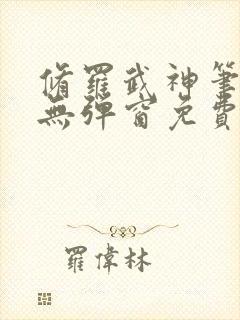 脩羅武神筆
無彈窗免費
羅偉林